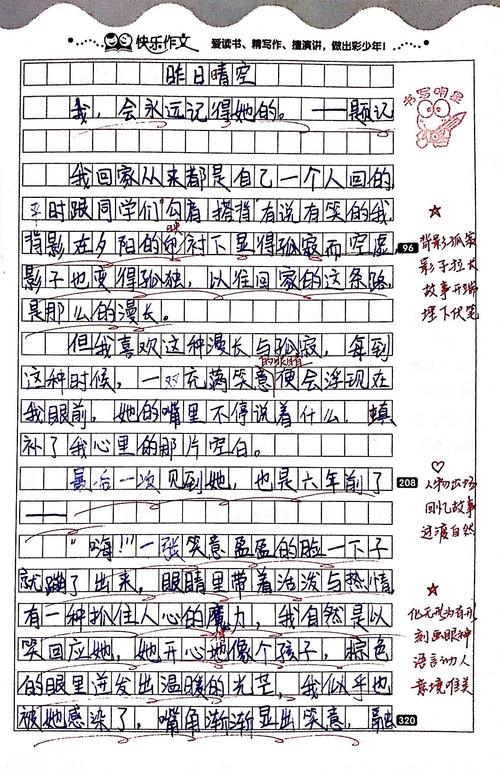 快乐作文 爱读书、精写作、擅演讲，做出彩少年！
昨日晴空
我，会永远记得她的。——题记
书写明星
我回家从来都是自己一个人回的，
平时跟同学们"勾肩搭背"有说有笑的我，
背影在夕阳的映衬下显得孤寂而空虚，
96
影子也变得孤独，以往回家的这条路，
是那么的漫长。
背影孤寂
影子拉长
故事开端
埋下伏笔
但我喜欢这种漫长与孤寂，每到
这种时候，一双充满笑意的眼睛便会浮现在
我眼前，她的嘴里不停说着什么，填
补了我心里的那片空白。
最后一次见到她，也是六年前了
208
——
人物出场
回忆故事
过渡自然
"嗨!!"一张笑意盈盈的脸一下子
就蹦了出来，眼睛里带着活泼与热情，
有一种抓住人心的魔力，我自然是以
笑回应她，她开心得像个孩子，棕色
的眼里迸发出温暖的光芒，我似乎也
被她感染了，嘴角渐渐显出笑意，融
320
化无形为有形
刻画眼神
语言动人
意境唯美